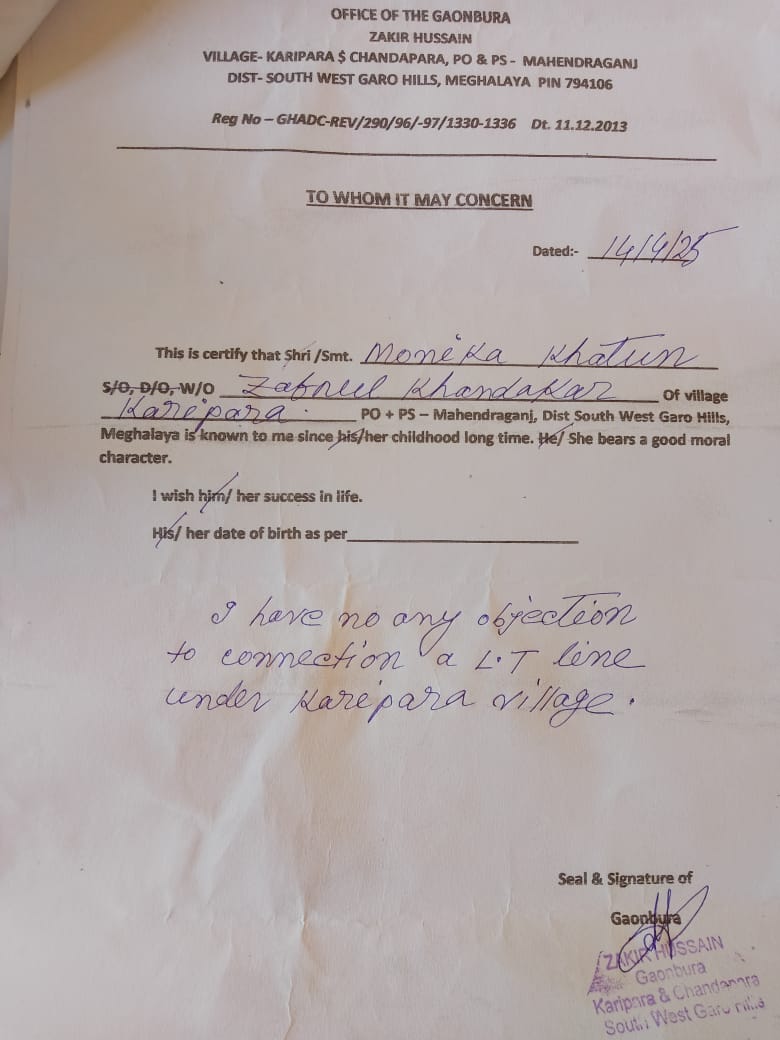 OFFICE OF THE GAONBURA
ZAKIR HUSSAIN
VILLAGE- KARIPARA $ CHANDAPARA, PO & PS - MAHENDRAGANJ
DIST- SOUTH WEST GARO HILLS, MEGHALAYA PIN 794106
Reg No – GHADC-REV/290/96/-97/1330-1336 Dt. 11.12.2013
TO WHOM IT MAY CONCERN
Dated:- 14/4/25
This is certify that Shri /Smt. Moneka Khatun
S/O, D/O, W/O Khandakar Of village
Karepara. PO + PS – Mahendraganj, Dist South West Garo Hills,
Meghalaya is known to me since his/her childhood long time. He/ She bears a good moral
character.
I wish him/ her success in life.
His/ her date of birth as per
I have no any objection
to connection a L.T line
under Karepara village.
Seal & Signature of
Gaonbura
ZAKIR HUSSAIN
Gaonbura
Karipara & Chandapara
South West Garo Hills